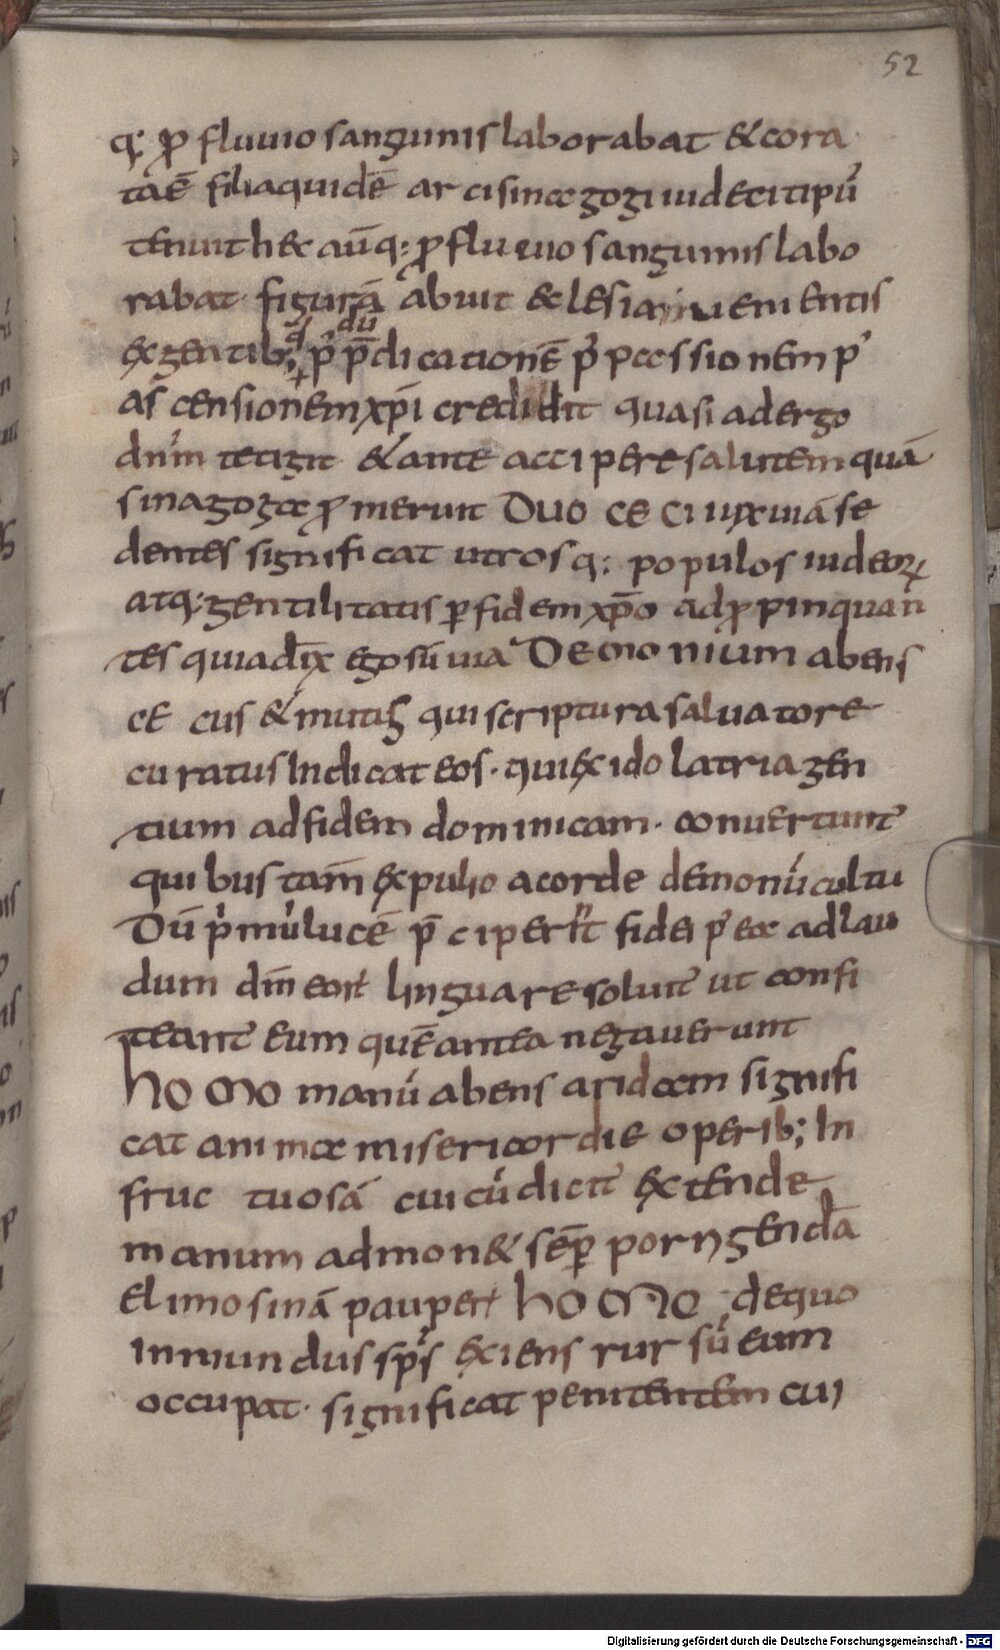 52
q; ꝓ fluuio sangunis laborabat & cora
taẽ filia quidẽ arcisinagogi iudeci tipũ
tenuit hec aũq; ꝓ flu euo sangunis labo
rabat figurã abuit eclesia inuenientis
ex gentib; q dũ p̃ p̃dicationẽ p̉ passionem p̉
as censionem xp̃i credidit quasi adergo
dñm tetigit & ante accipere salutem quã
sinagoga ꝓmeruit Duo ceci iuxuiã se
dentes significat utrosq; populos iudeoꝝ
atq; gentilitatis ꝑ fidem xp̃o adꝓpinquan
tes quia dix̃ ego sũ uia Demonium abens
cecus & mutus qui scriptura saluatore
curatus Indicat eos. qui ex idolatria gen
tium ad fidem dominicam. conuertunt̃
quibus tam̃ expulso a corde demonũ cultu
Dũ p̉mũ lucẽ p̃ciper̃t fidei p̉ ea ad lau
dum dñi eoꝝ lingua resolut̃ ut confi
teant̃ eum quẽ antea negauerunt
hOMO manũ abens aridam signifi
cat anima misericordie operib; In
fructuosã cui cũ dicit̃ extende
manum admon& sẽꝑ porrigendã
Elimosinã pauperꝝ hOMO de quo
Inmundus sp̃s exiens rursũ eum
occupat. significat penitentem cui
Digitalisierung gefördert durch die Deutsche Forschungsgemeinschaft - DFG